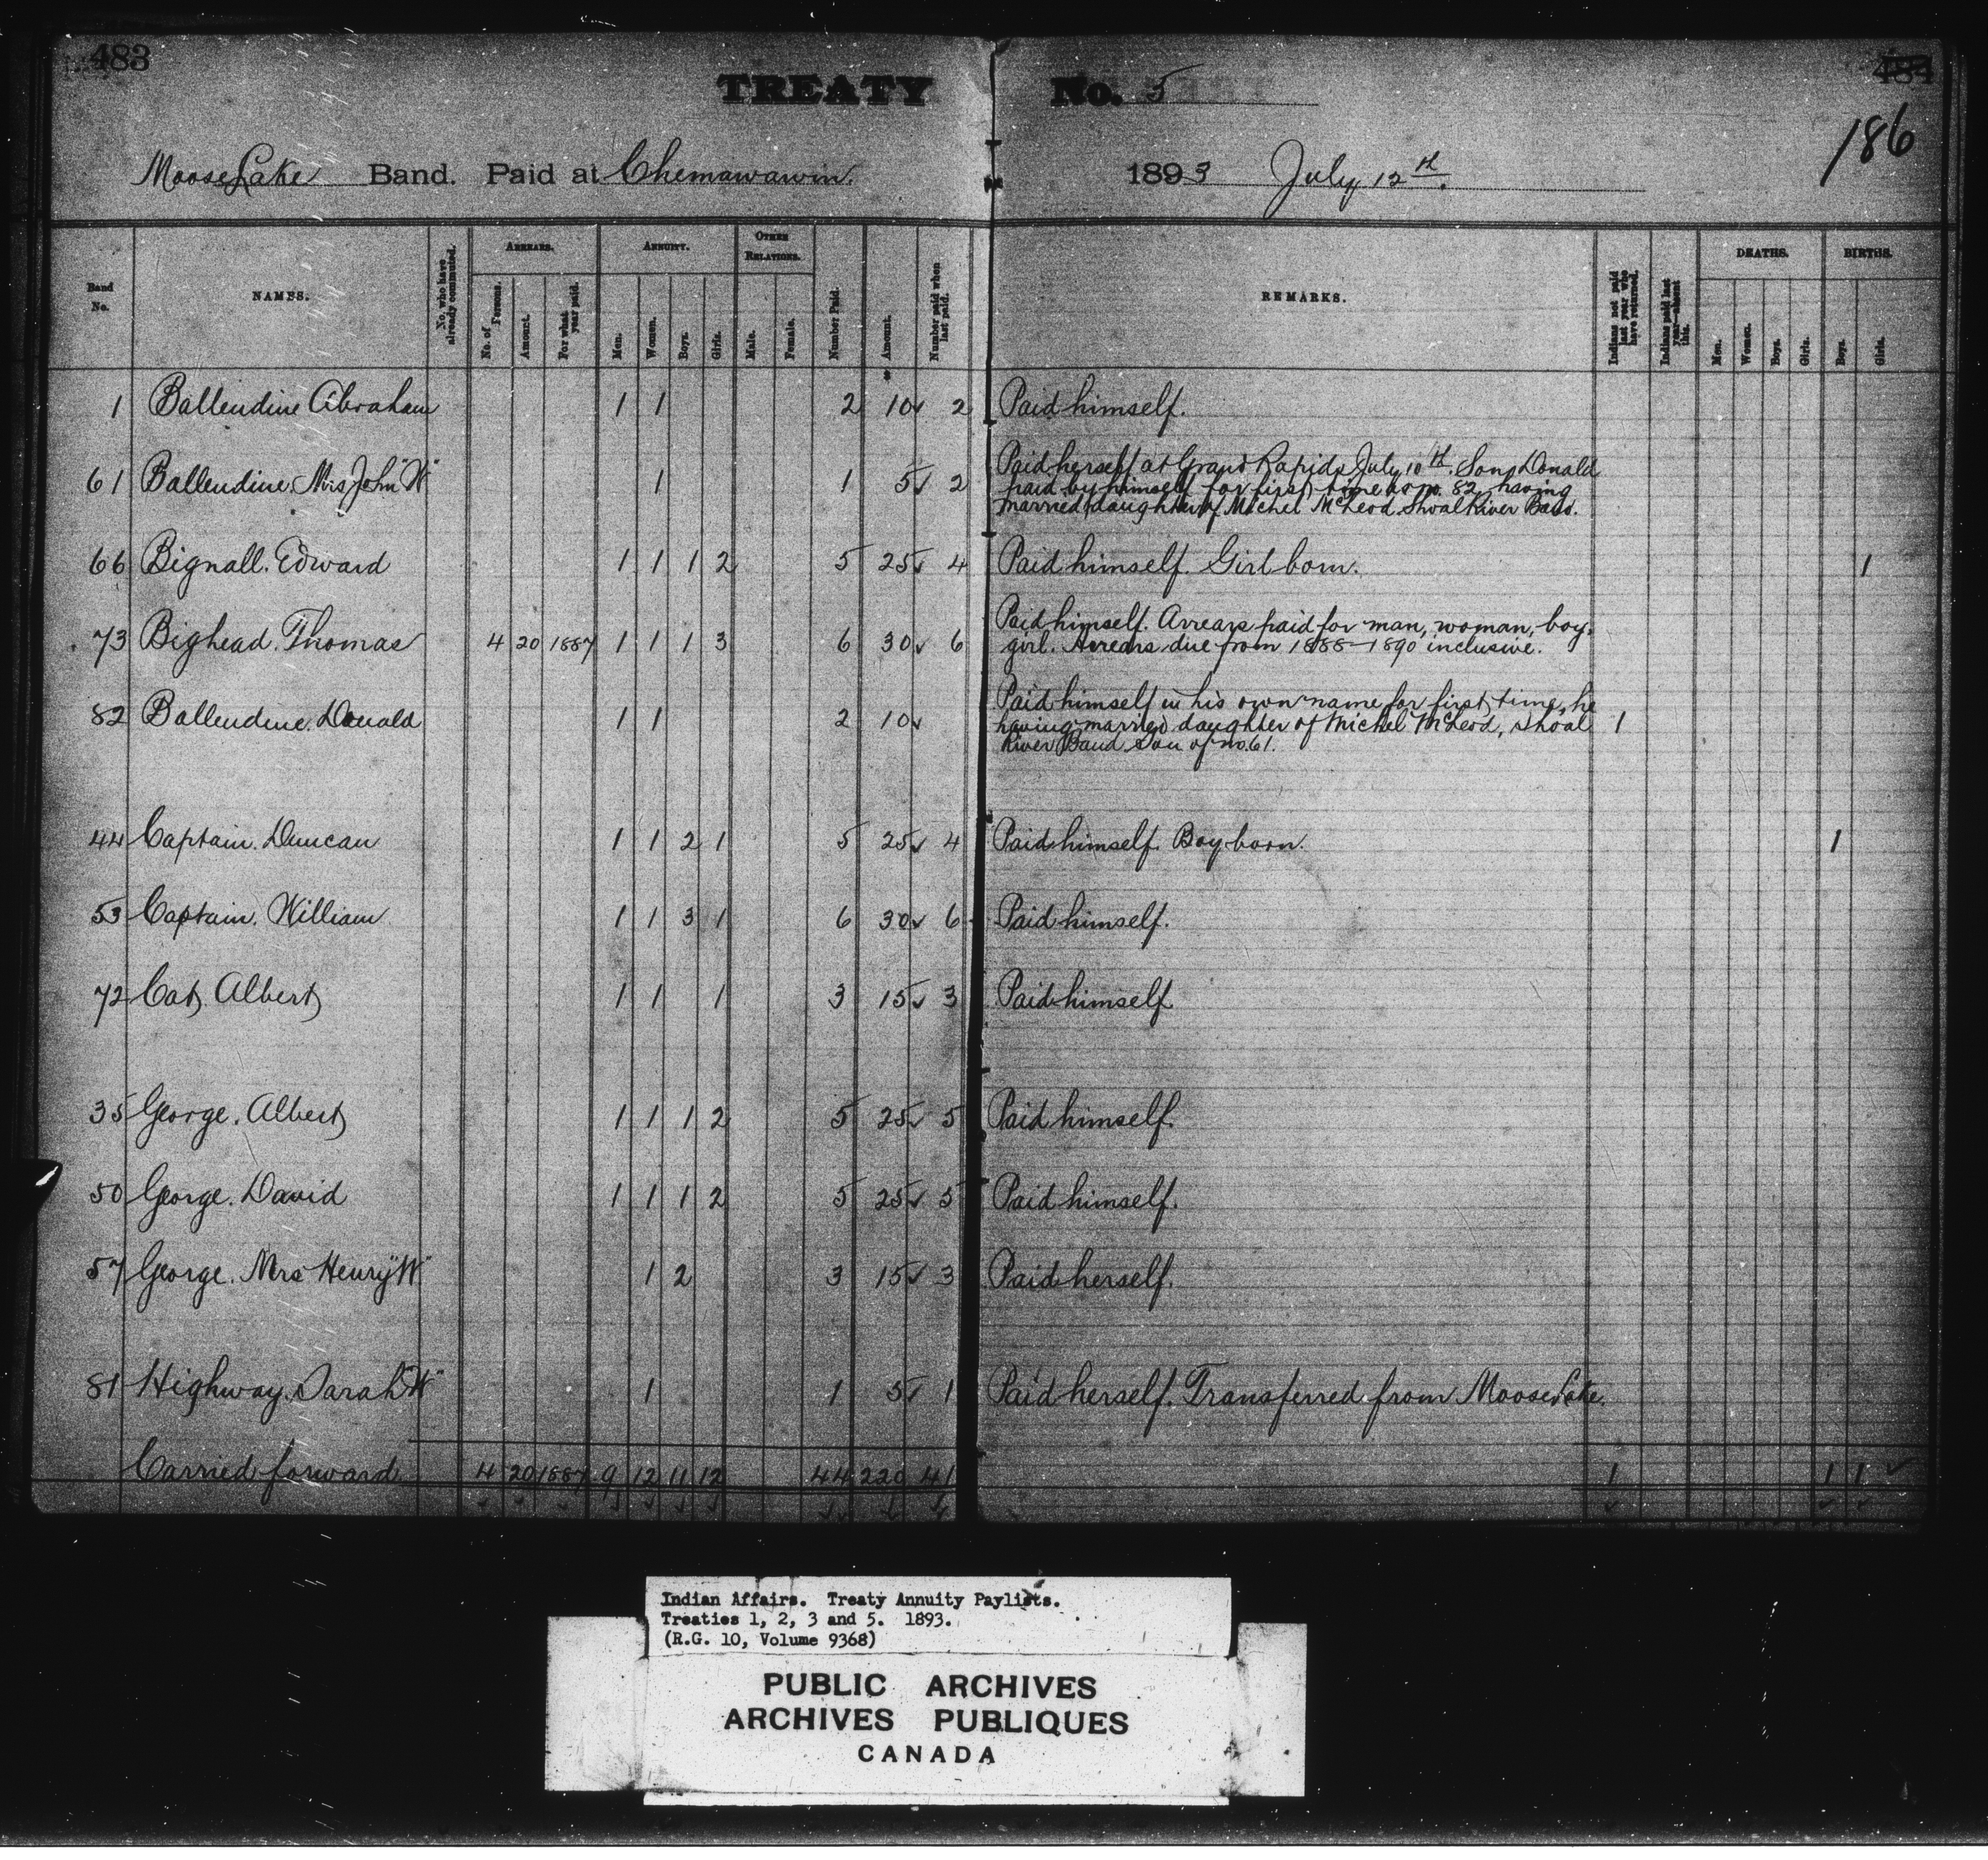 483
484
186
TREATY No. 5
Moose Lake Band. Paid at Chemawawin. 1893 July 12th.
Band No. NAMES. No. who have already commuted. ARREARS. No. of Persons. Amount. For what year paid. ANNUITY. Men. Women. Boys. Girls. OTHER RELATIONS. Male. Female. Number Paid. Amount. Number paid when last paid. REMARKS. Indians not paid last year who have returned. Indians paid last year—absent this. DEATHS. Men. Women. Boys. Girls. BIRTHS. Boys. Girls.
1 Ballendine Abraham 1 1 2 10 ✓ 2 Paid himself.
61 Ballendine. Mrs John "W" 1 1 5 ✓ 2 Paid herself at Grand Rapids July 10th. Son Donald
paid by himself for first time as no. 82, having
married daughter of Michel McLeod Shoal River Band.
66 Bignall. Edward 1 1 1 2 5 25 ✓ 4 Paid himself. Girl born. 1
73 Bighead. Thomas 4 20 1887 1 1 1 3 6 30 ✓ 6 Paid himself. Arrears paid for man, woman, boy,
girl. Arrears due from 1888–1890 inclusive.
82 Ballendine. Donald 1 1 2 10 ✓ Paid himself in his own name for first time, he
having married daughter of Michel McLeod, Shoal 1
River Band Son of no. 61.
44 Captain. Duncan 1 1 2 1 5 25 ✓ 4 Paid himself. Boy born. 1
53 Captain. William 1 1 3 1 6 30 ✓ 6 Paid himself.
72 Cat, Albert 1 1 1 3 15 ✓ 3 Paid himself
35 George. Albert 1 1 1 2 5 25 ✓ 5 Paid himself.
50 George. David 1 1 1 2 5 25 ✓ 5 Paid himself.
57 George. Mrs Henry "W" 1 2 3 15 ✓ 3 Paid herself.
81 Highway. Sarah "W" 1 1 5 ✓ 1 Paid herself. Transferred from Moose Lake.
Carried forward 4 20 1887 9 12 11 12 44 220 41 1 1 1 ✓
Indian Affairs. Treaty Annuity Paylists.
Treaties 1, 2, 3 and 5. 1893.
(R.G. 10, Volume 9368)
PUBLIC ARCHIVES
ARCHIVES PUBLIQUES
CANADA